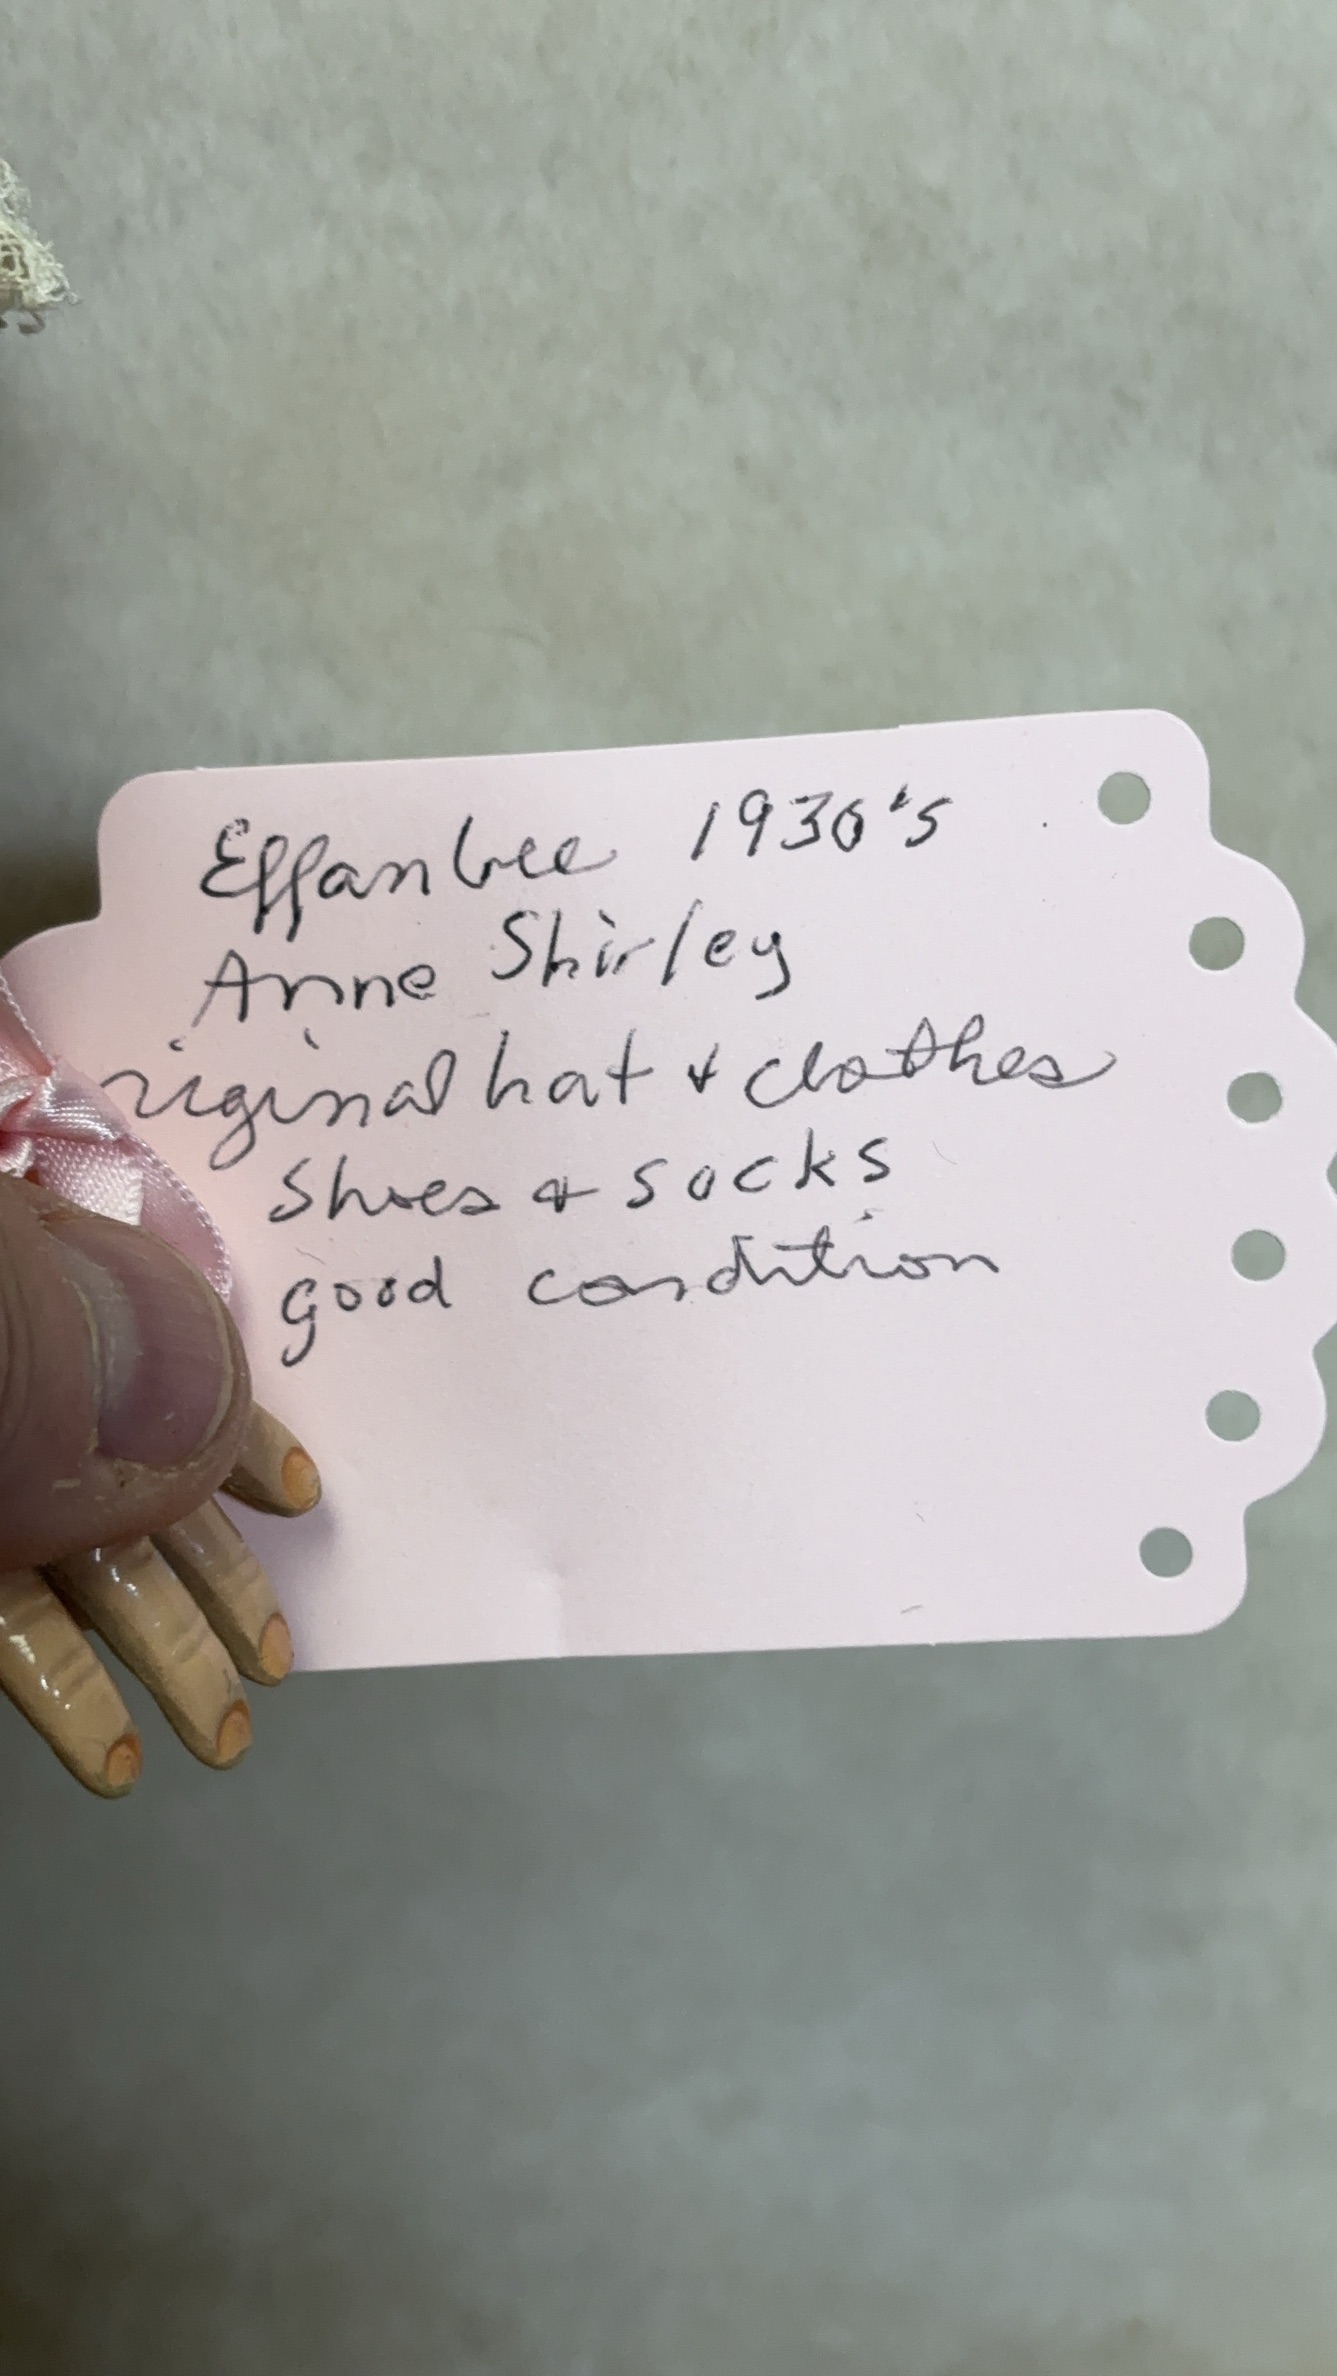 Effanbee 1930's
Anne Shirley
riginal hat & clothes
Shoes & socks
good condition